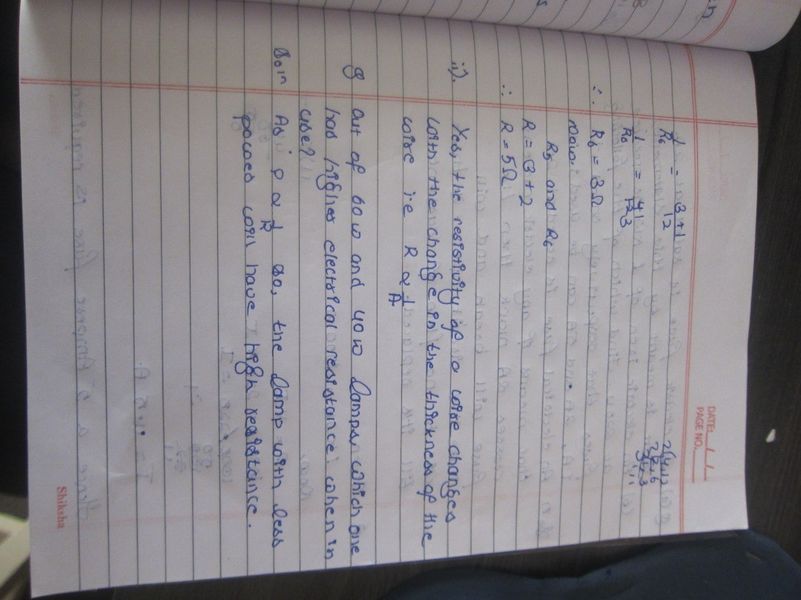 DATE: / /
PAGE NO.
1/R6 = 3+1/12
1/R6 = 4/12 3
∴ R6 = 3Ω
Now,
R5 and R6
R = 3+2
∴ R = 5Ω
ii). Yes, the resistivity of a wire changes
with the change in the thickness of the
wire i.e R ∝ 1/A
Q Out of 60w and 40w Lamps, which one
has higher electrical resistance when in
use?
Soln As, P ∝ 1/R so, the Lamp with less
power will have high resistance.
Shiksha